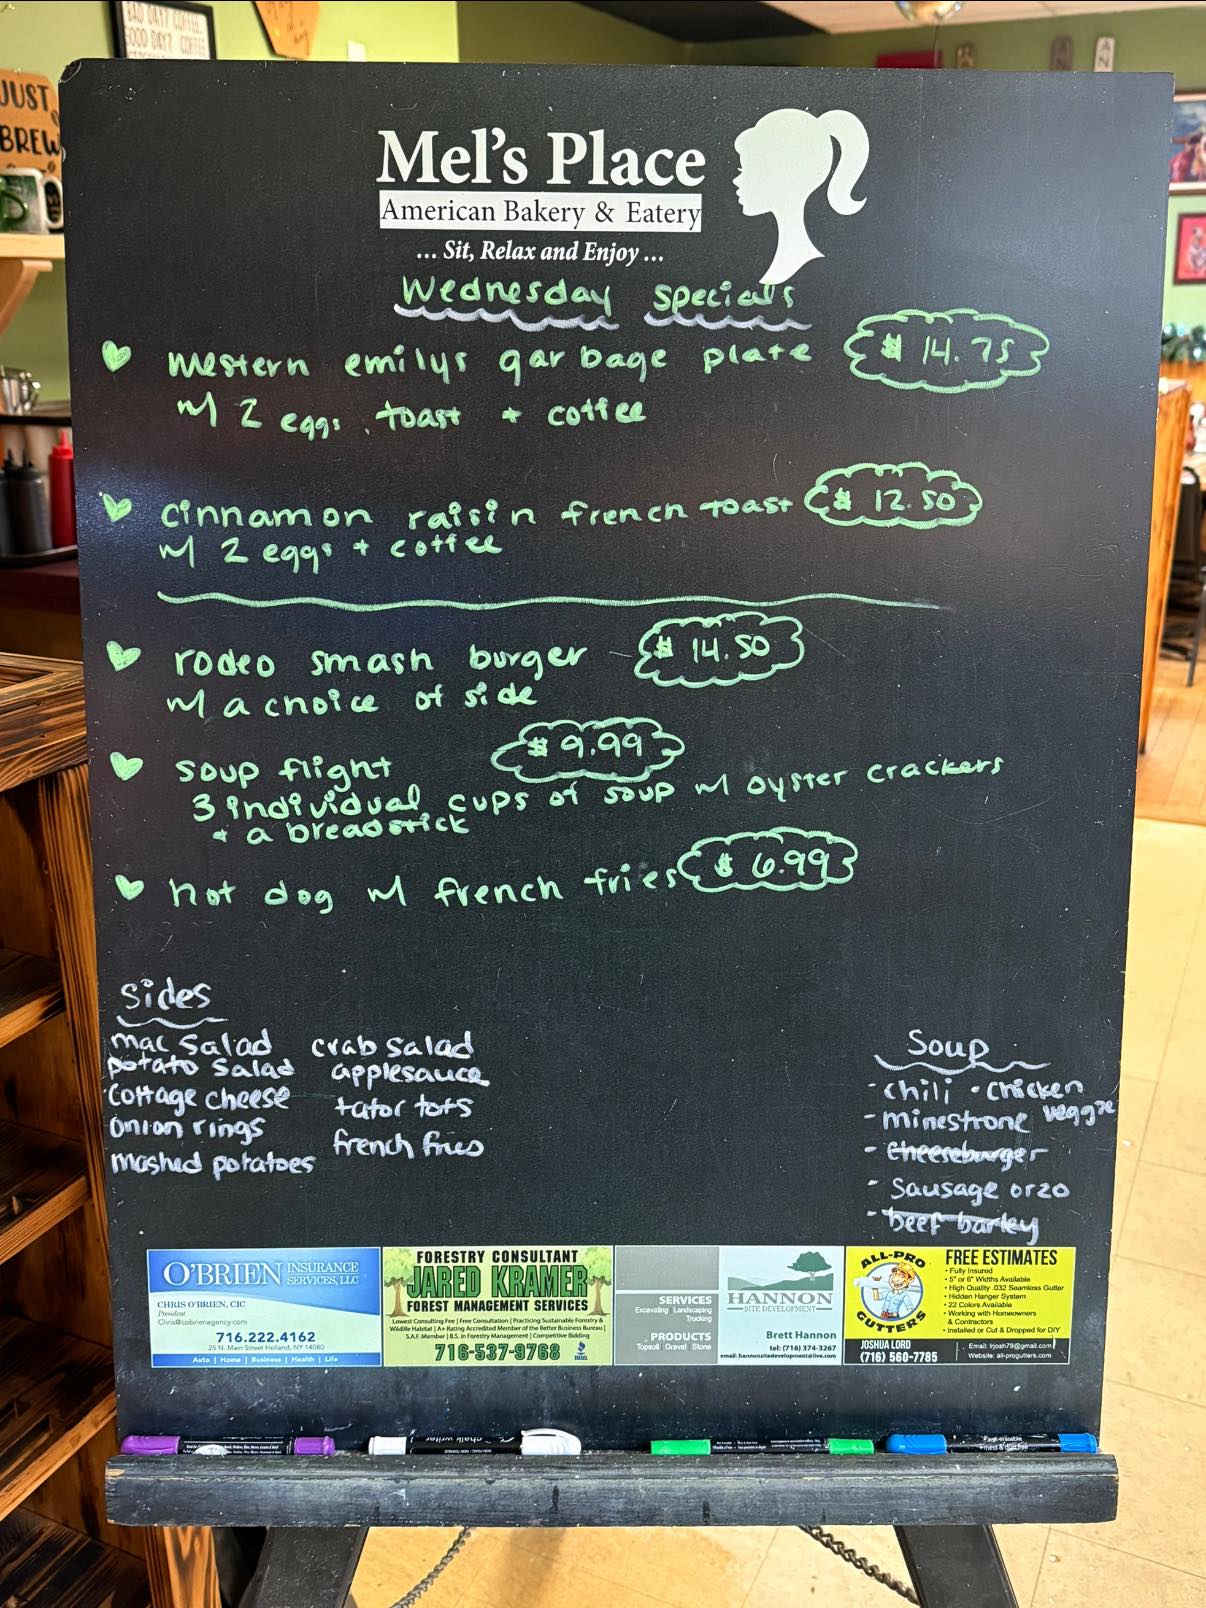 BAD DAY? COFFEE.
GOOD DAY? COFFEE.
JUST
BREW
Mel's Place
American Bakery & Eatery
... Sit, Relax and Enjoy ...
Wednesday Specials
western emilys garbage plate $ 14.75
w/ 2 eggs, toast + coffee
cinnamon raisin french toast $ 12.50
w/ 2 eggs + coffee
rodeo smash burger $ 14.50
w/ a choice of side
soup flight $ 9.99
3 individual cups of soup w/ oyster crackers
+ a breadstick
hot dog w/ french fries $ 6.99
Sides
mac salad crab salad
potato salad applesauce
cottage cheese tator tots
onion rings french fries
mashed potatoes
Soup
- chili - chicken veggie
- minestrone
- cheeseburger
- sausage orzo
- beef barley
O'BRIEN INSURANCE SERVICES, LLC
CHRIS O'BRIEN, CIC
President
Chris@cobrienagency.com
716.222.4162
25 N. Main Street Holland, NY 14080
Auto | Home | Business | Health | Life
FORESTRY CONSULTANT
JARED KRAMER
FOREST MANAGEMENT SERVICES
Lowest Consulting Fee | Free Consultation | Practicing Sustainable Forestry &
Wildlife Habitat | A+ Rating Accredited Member of the Better Business Bureau |
S.A.F. Member | B.S. in Forestry Management | Competitive Bidding
716-537-9768
SERVICES
Excavating Landscaping
Trucking
PRODUCTS
Topsoil Gravel Stone
HANNON
SITE DEVELOPMENT
Brett Hannon
tel: (716) 374-3267
email: hannonsitedevelopment@live.com
ALL-PRO
GUTTERS
FREE ESTIMATES
• Fully Insured
• 5" or 6" Widths Available
• High Quality .032 Seamless Gutter
• Hidden Hanger System
• 22 Colors Available
• Working with Homeowners
& Contractors
• Installed or Cut & Dropped for DIY
JOSHUA LORD
(716) 560-7785
Email: lrjosh79@gmail.com
Website: all-progutters.com
chalk writer